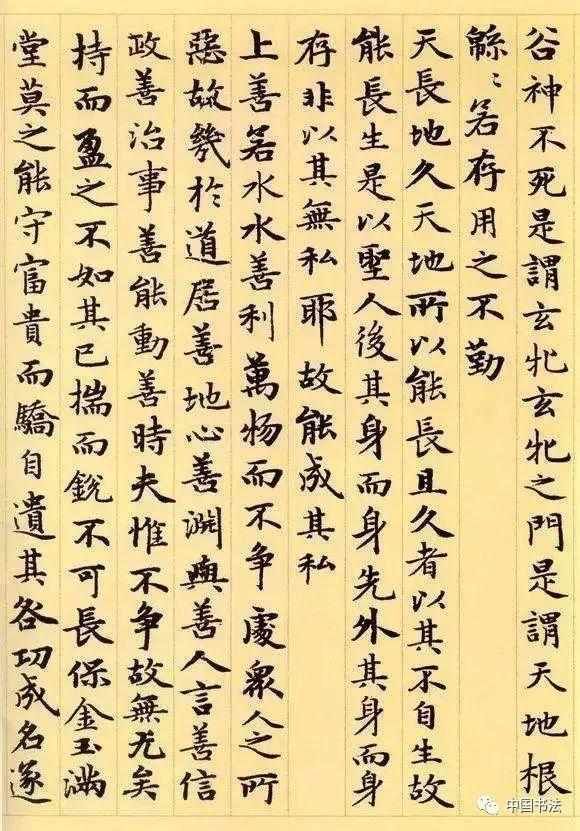 谷神不死是謂玄牝玄牝之門是謂天地根
緜〻若存用之不勤
天長地久天地所以能長且久者以其不自生故
能長生是以聖人後其身而身先外其身而身
存非以其無私耶故能成其私
上善若水水善利萬物而不爭處衆人之所
惡故幾於道居善地心善淵與善人言善信
政善治事善能動善時夫惟不爭故無尤矣
持而盈之不如其已揣而銳不可長保金玉滿
堂莫之能守富貴而驕自遺其咎功成名遂
中国书法